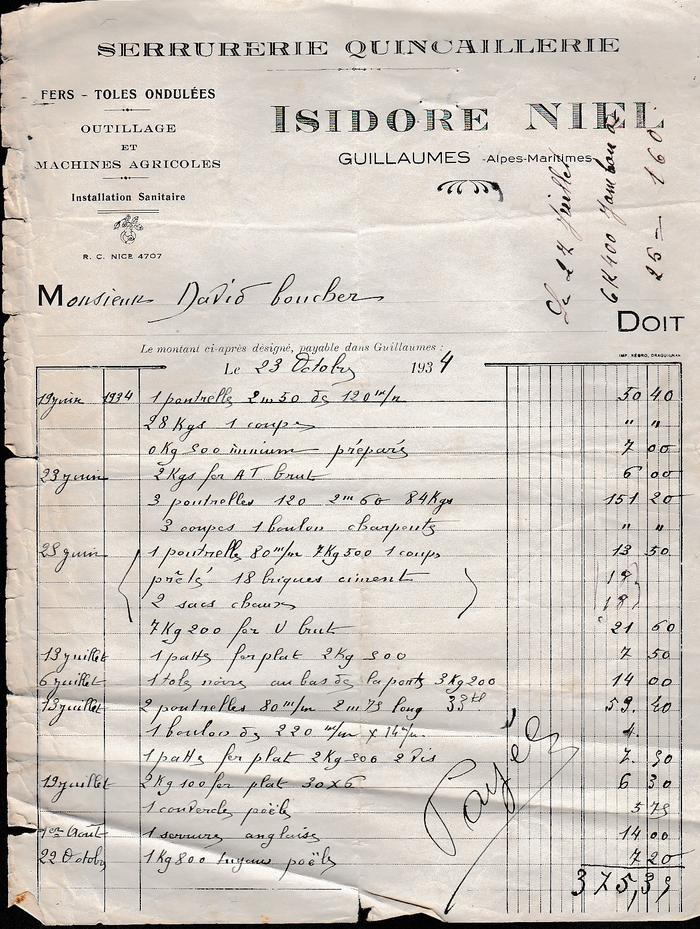 SERRURERIE QUINCAILLERIE
FERS - TOLES ONDULÉES
OUTILLAGE
ET
MACHINES AGRICOLES
Installation Sanitaire
R. C. NICE 4707
ISIDORE NIEL
GUILLAUMES -Alpes-Maritimes-
Le 27 Juillet
6K400
25 = 160
Monsieur David boucher
DOIT
Le montant ci-après désigné, payable dans Guillaumes :
IMP. RÉBRO, DRAGUIGNAN
Le 23 Octobre 1934
19 juin 1934 1 poutrelle 2m50 de 120 m/m 50 40
28 Kgs 1 coupe " "
0Kg 500 minium préparé 7 00
23 juin 2 Kgs fer AT brut 6 00
3 poutrelles 120 2m60 84Kgs 151 20
3 coupes 1 boulon charpente " "
25 juin 1 poutrelle 80 m/m 7Kg500 1 coupe 13 50
prêté 18 briques ciment 18
2 sacs chaux 18
7Kg200 fer U brut 21 60
13 juillet 1 patte fer plat 2Kg 500 7 50
6 juillet 1 tole noire au bas de la porte 3Kg200 14 00
13 juillet 2 poutrelles 80 m/m 2m75 long 33 59. 40
1 boulon de 220 m/m x 14 m/m 4.
1 patte fer plat 2Kg500 2 vis 7. 50
19 juillet 2Kg100 fer plat 30x6 6 30
1 couvercle poële 5 75
1er Août 1 serrure anglaise 14 00
22 Octobre 1Kg800 tuyau poële 7 20
375,35
Payé